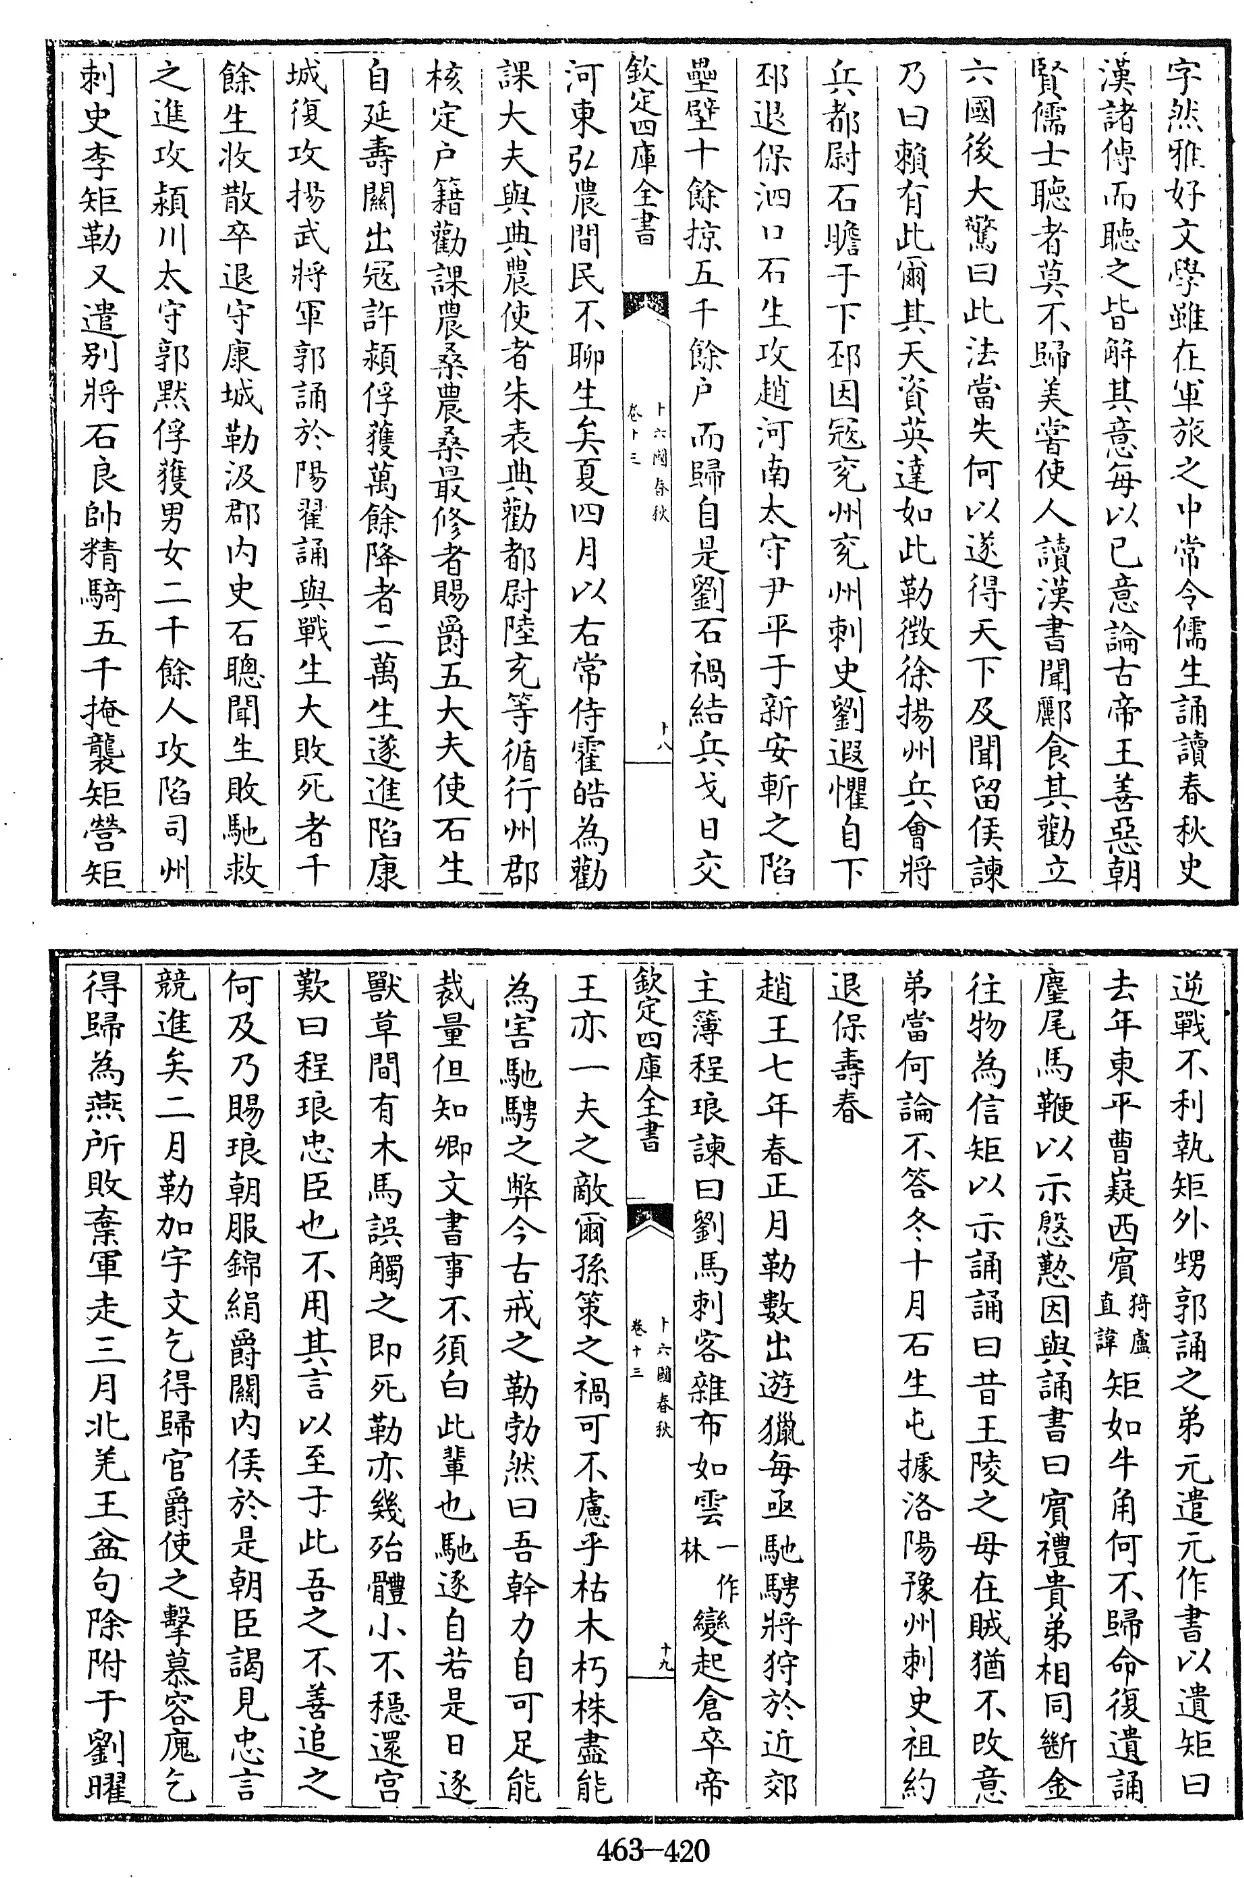 字然雅好文學雖在軍旅之中常令儒生誦讀春秋史
漢諸傳而聽之皆解其意每以已意論古帝王善惡朝
賢儒士聽者莫不歸美嘗使人讀漢書聞酈食其勸立
六國後大驚曰此法當失何以遂得天下及聞留侯諫
乃曰賴有此爾其天資英達如此勒徴徐揚州兵會將
兵都尉石瞻于下邳因冦兖州兖州刺史劉遐懼自下
邳退保泗口石生攻趙河南太守尹平于新安斬之陷
壘壁十餘掠五千餘户而歸自是劉石禍結兵戈日交
欽定四庫全書
十六國春秋
卷十三
十八
河東弘農間民不聊生矣夏四月以右常侍霍皓為勸
課大夫與典農使者朱表典勸都尉陸充等循行州郡
核定户籍勸課農桑農桑最修者賜爵五大夫使石生
自延壽關出冦許潁俘獲萬餘降者二萬生遂進陷康
城復攻揚武將軍郭誦於陽翟誦與戰生大敗死者千
餘生收散卒退守康城勒汲郡内史石聰聞生敗馳救
之進攻潁川太守郭默俘獲男女二千餘人攻陷司州
刺史李矩勒又遣别將石良帥精騎五千掩襲矩營矩
逆戰不利執矩外甥郭誦之弟元遣元作書以遺矩曰
去年東平曹嶷西賓猗盧直諱矩如牛角何不歸命復遺誦
麈尾馬鞭以示慇懃因與誦書曰賓禮貴弟相同斷金
往物為信矩以示誦誦曰昔王陵之母在賊猶不改意
弟當何論不答冬十月石生屯據洛陽豫州刺史祖約
退保壽春
趙王七年春正月勒數出遊獵每亟馳騁將狩於近郊
主簿程琅諫曰劉馬刺客離布如雲一作林變起倉卒帝
欽定四庫全書
十六國春秋
卷十三
十九
王亦一夫之敵爾孫策之禍可不慮乎枯木朽株盡能
為害馳騁之弊今古戒之勒勃然曰吾幹力自可足能
裁量但知卿文書事不須白此輩也馳逐自若是日逐
獸草間有木馬誤觸之即死勒亦幾殆體小不穩還宫
歎曰程琅忠臣也不用其言以至于此吾之不善追之
何及乃賜琅朝服錦絹爵關内侯於是朝臣謁見忠言
競進矣二月勒加宇文乞得歸官爵使之擊慕容廆乞
得歸為燕所敗棄軍走三月北羌王盆句除附于劉曜
463—420